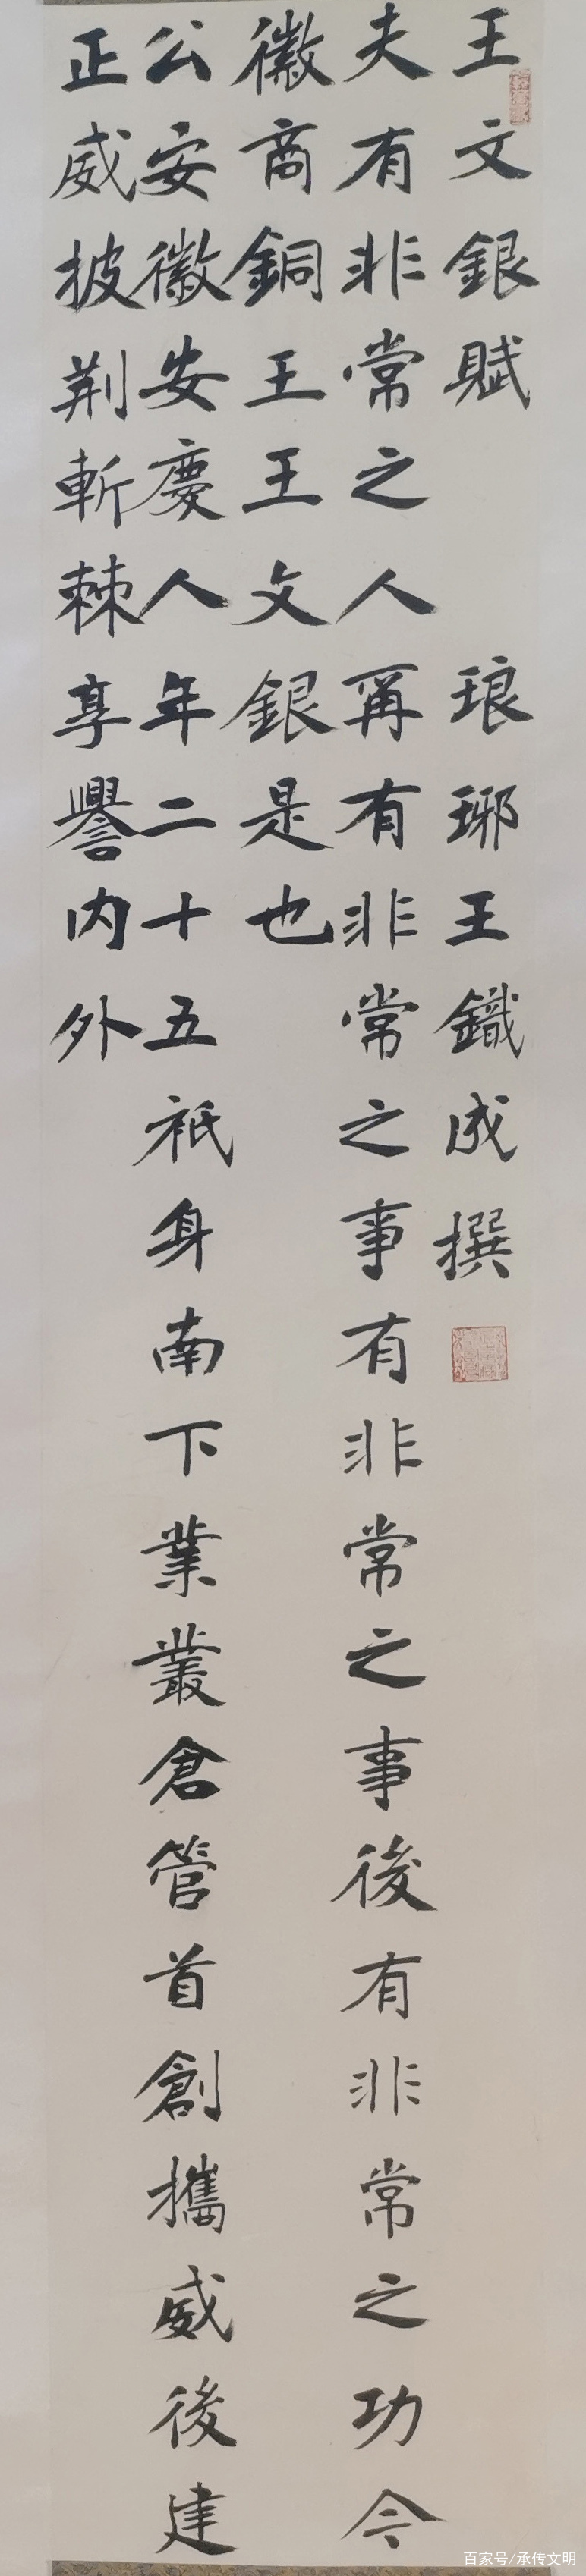 王文銀賦 琅琊王鐵成撰
夫有非常之人再有非常之事有非常之事後有非常之功今
徽商銅王王文銀是也
公安徽安慶人年二十五祇身南下業叢倉管首創攜威後建
正威披荆斬棘享譽内外
百家号/承传文明